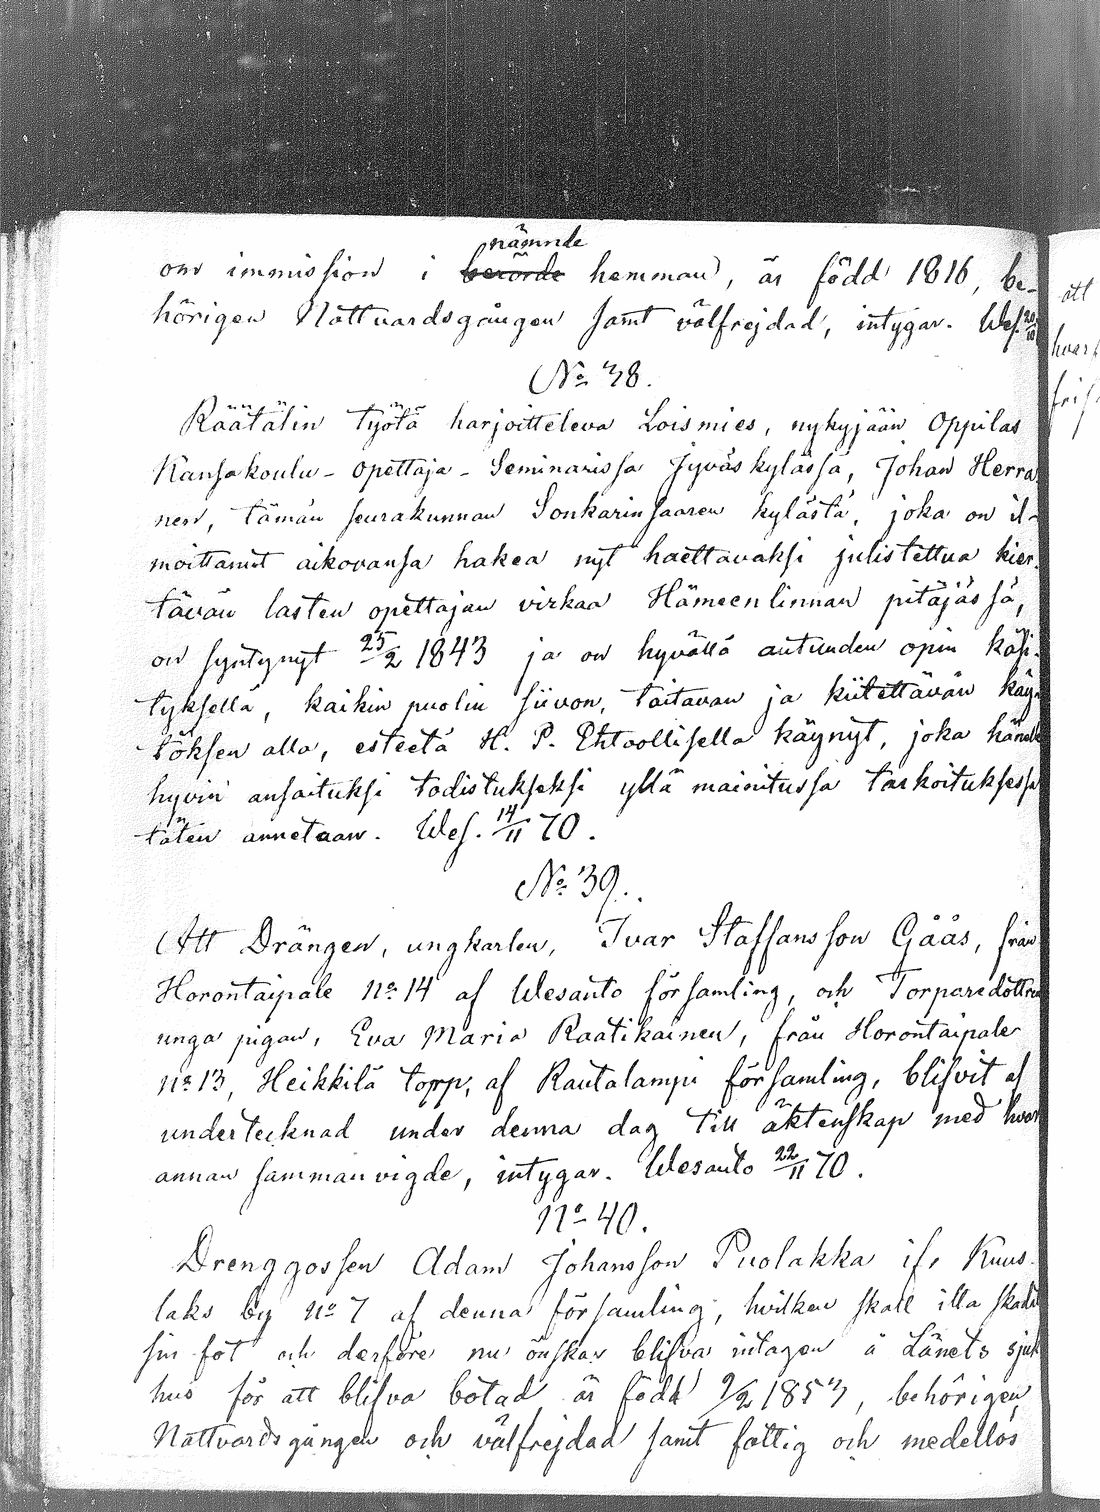 nämnde
om immission i berörde hemman, är född 1816, be-
hörigen Nattvardsgången samt välfrejdad, intygar. Wes. 20/10
No 38.
Räätälin työtä harjoitteleva Loismies, nykyjään Oppilas
Kansakoulu-opettaja-Seminarissa Jyväskylässä, Johan Herra
nen, tämän seurakunnan Sonkarinsaaren kylästä, joka on il-
moittanut aikovansa hakea nyt haettavaksi julistettua kier-
tävän lasten opettajan virkaa Hämeenlinnan pitäjässä,
on syntynyt 25/2 1843 ja on hyvällä autuuden opin käsi-
tyksellä, kaikin puolin siivon, taitavan ja kiitettävän käy-
töksen alla, esteetä H. P. Ehtoollisella käynyt, joka hänelle
hyvin ansaituksi todistukseksi yllä mainitussa tarkoituksessa
täten annetaan. Wes. 14/11 70.
No 39.
Att Drängen, ungkarlen, Ivar Staffansson Gåås, från
Horontaipale No 14 af Wesanto församling, och Torparedottren
unga pigan, Eva Maria Raatikainen, från Horontaipale
No 13, Heikkilä torp, af Rautalampi församling, blifvit af
undertecknad under denna dag till äktenskap med hvar
annan sammanvigde, intygar. Wesanto 22/11 70.
No 40.
Drenggossen Adam Johansson Puolakka if. Kuus-
laks by No 7 af denna församling, hvilken skall illa skadat
sin fot och derföre nu önskar blifva intagen å Länets sjuk
hus för att blifva botad är född 9/2 1853, behörigen
Nattvardsgången och välfrejdad samt fattig och medellös
att
hvarf